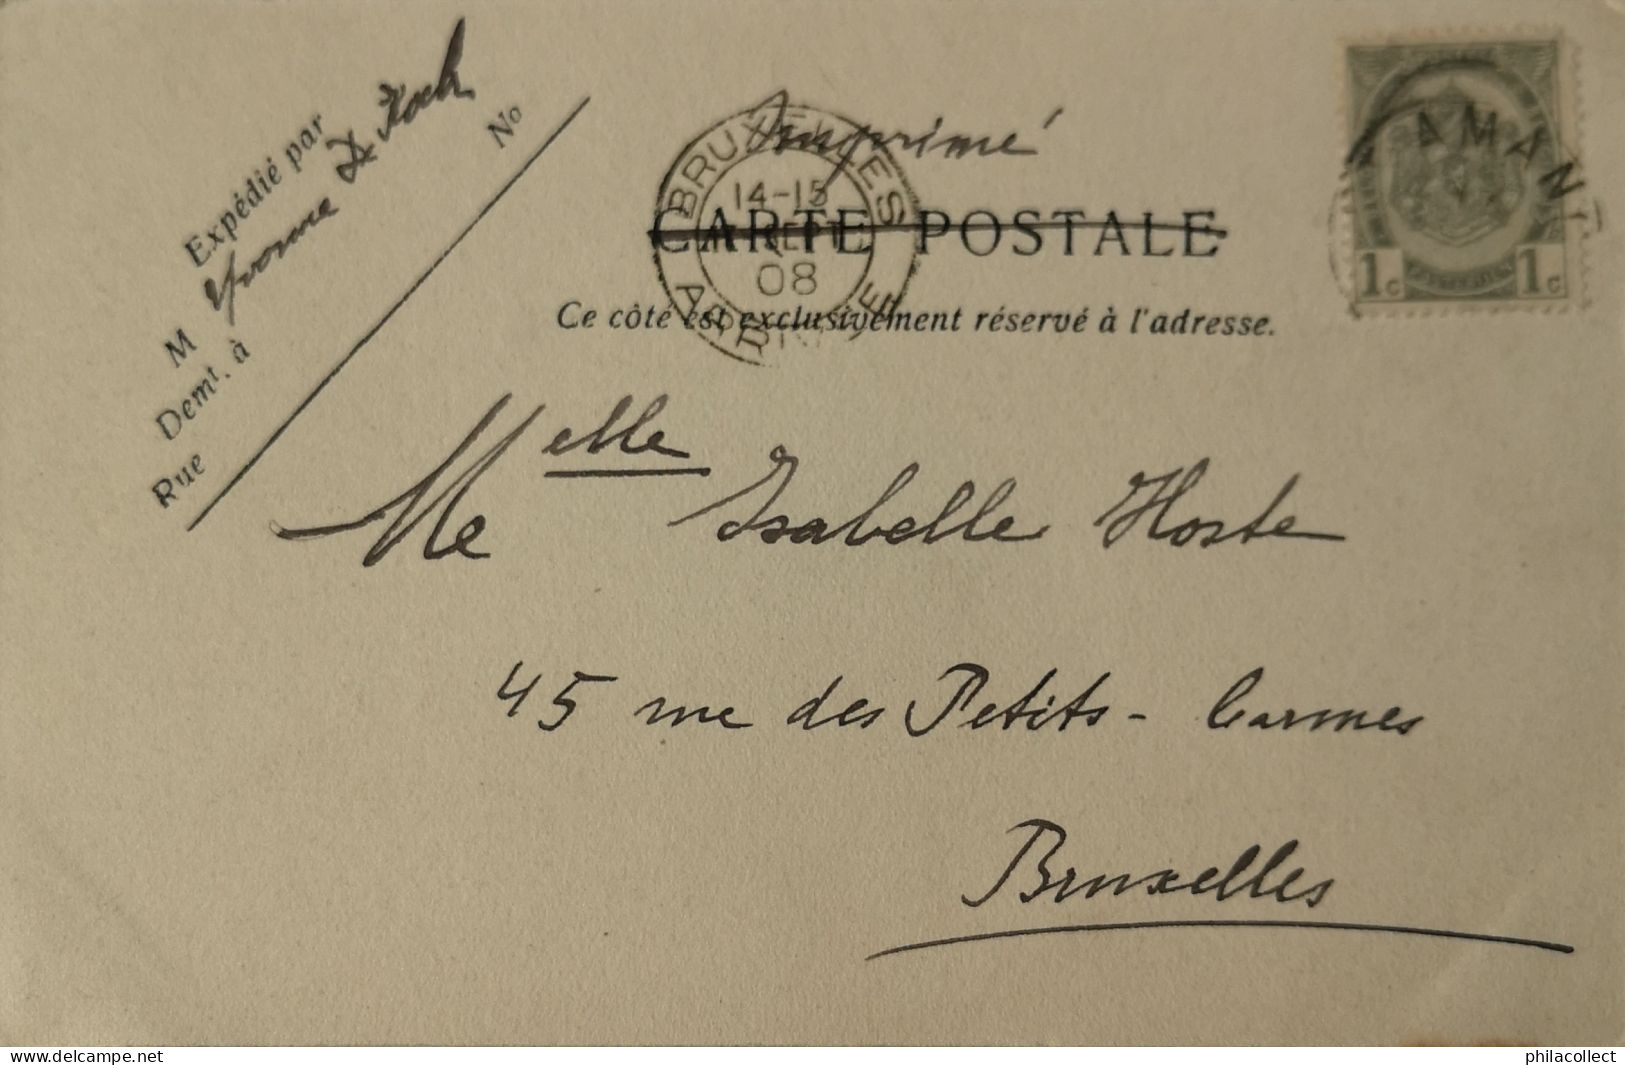 Expédié par
M Yvonne De Koch
Demt. à
Rue No
Imprimé
CARTE POSTALE
Ce côté est exclusivement réservé à l'adresse.
BRUXELLES
14-15
SEPT
08
1c 1c
Melle Isabelle Hoste
45 rue des Petits-Carmes
Bruxelles
delcampe.net
philacollect